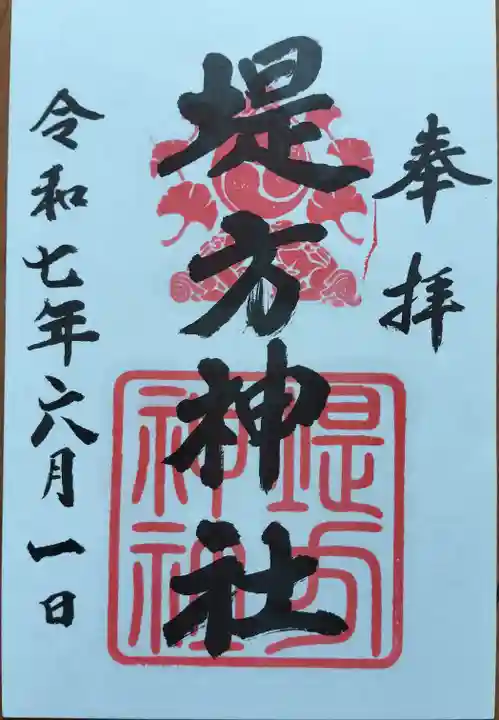 奉拝
堤方神社
堤方
神社
令和七年六月一日